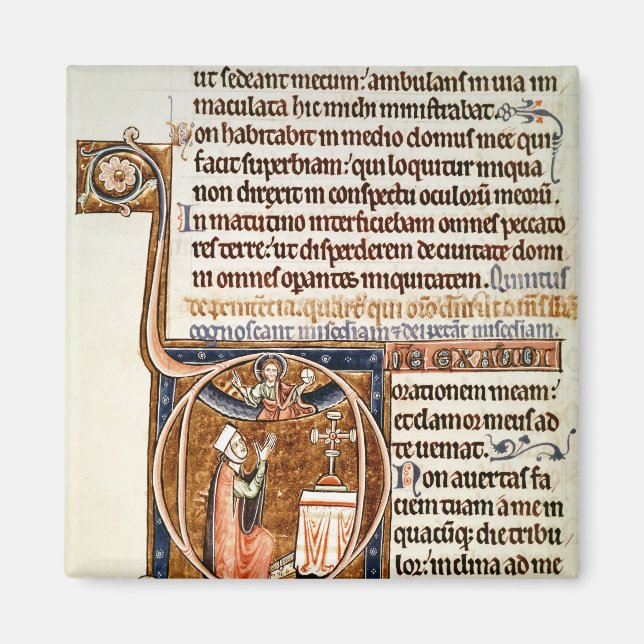 ut sedeant mecum: ambulans in uia im
maculata hic michi ministrabat.
Non habitabit in medio domus mee qui
facit superbiam: qui loquitur iniqua
non direxit in conspectu oculorū meorū.
In matutino interficiebam omnes peccato
res terre: ut disperderem de ciuitate domi
ni omnes operantes iniquitatem. Quintus
cognoscant misẽiam
NE EXAUDI
orationem meam:
et clamor meus ad
te ueniat.
Non auertas fa
ciem tuam a me in
quacūq; die tribu
lor: inclina ad me